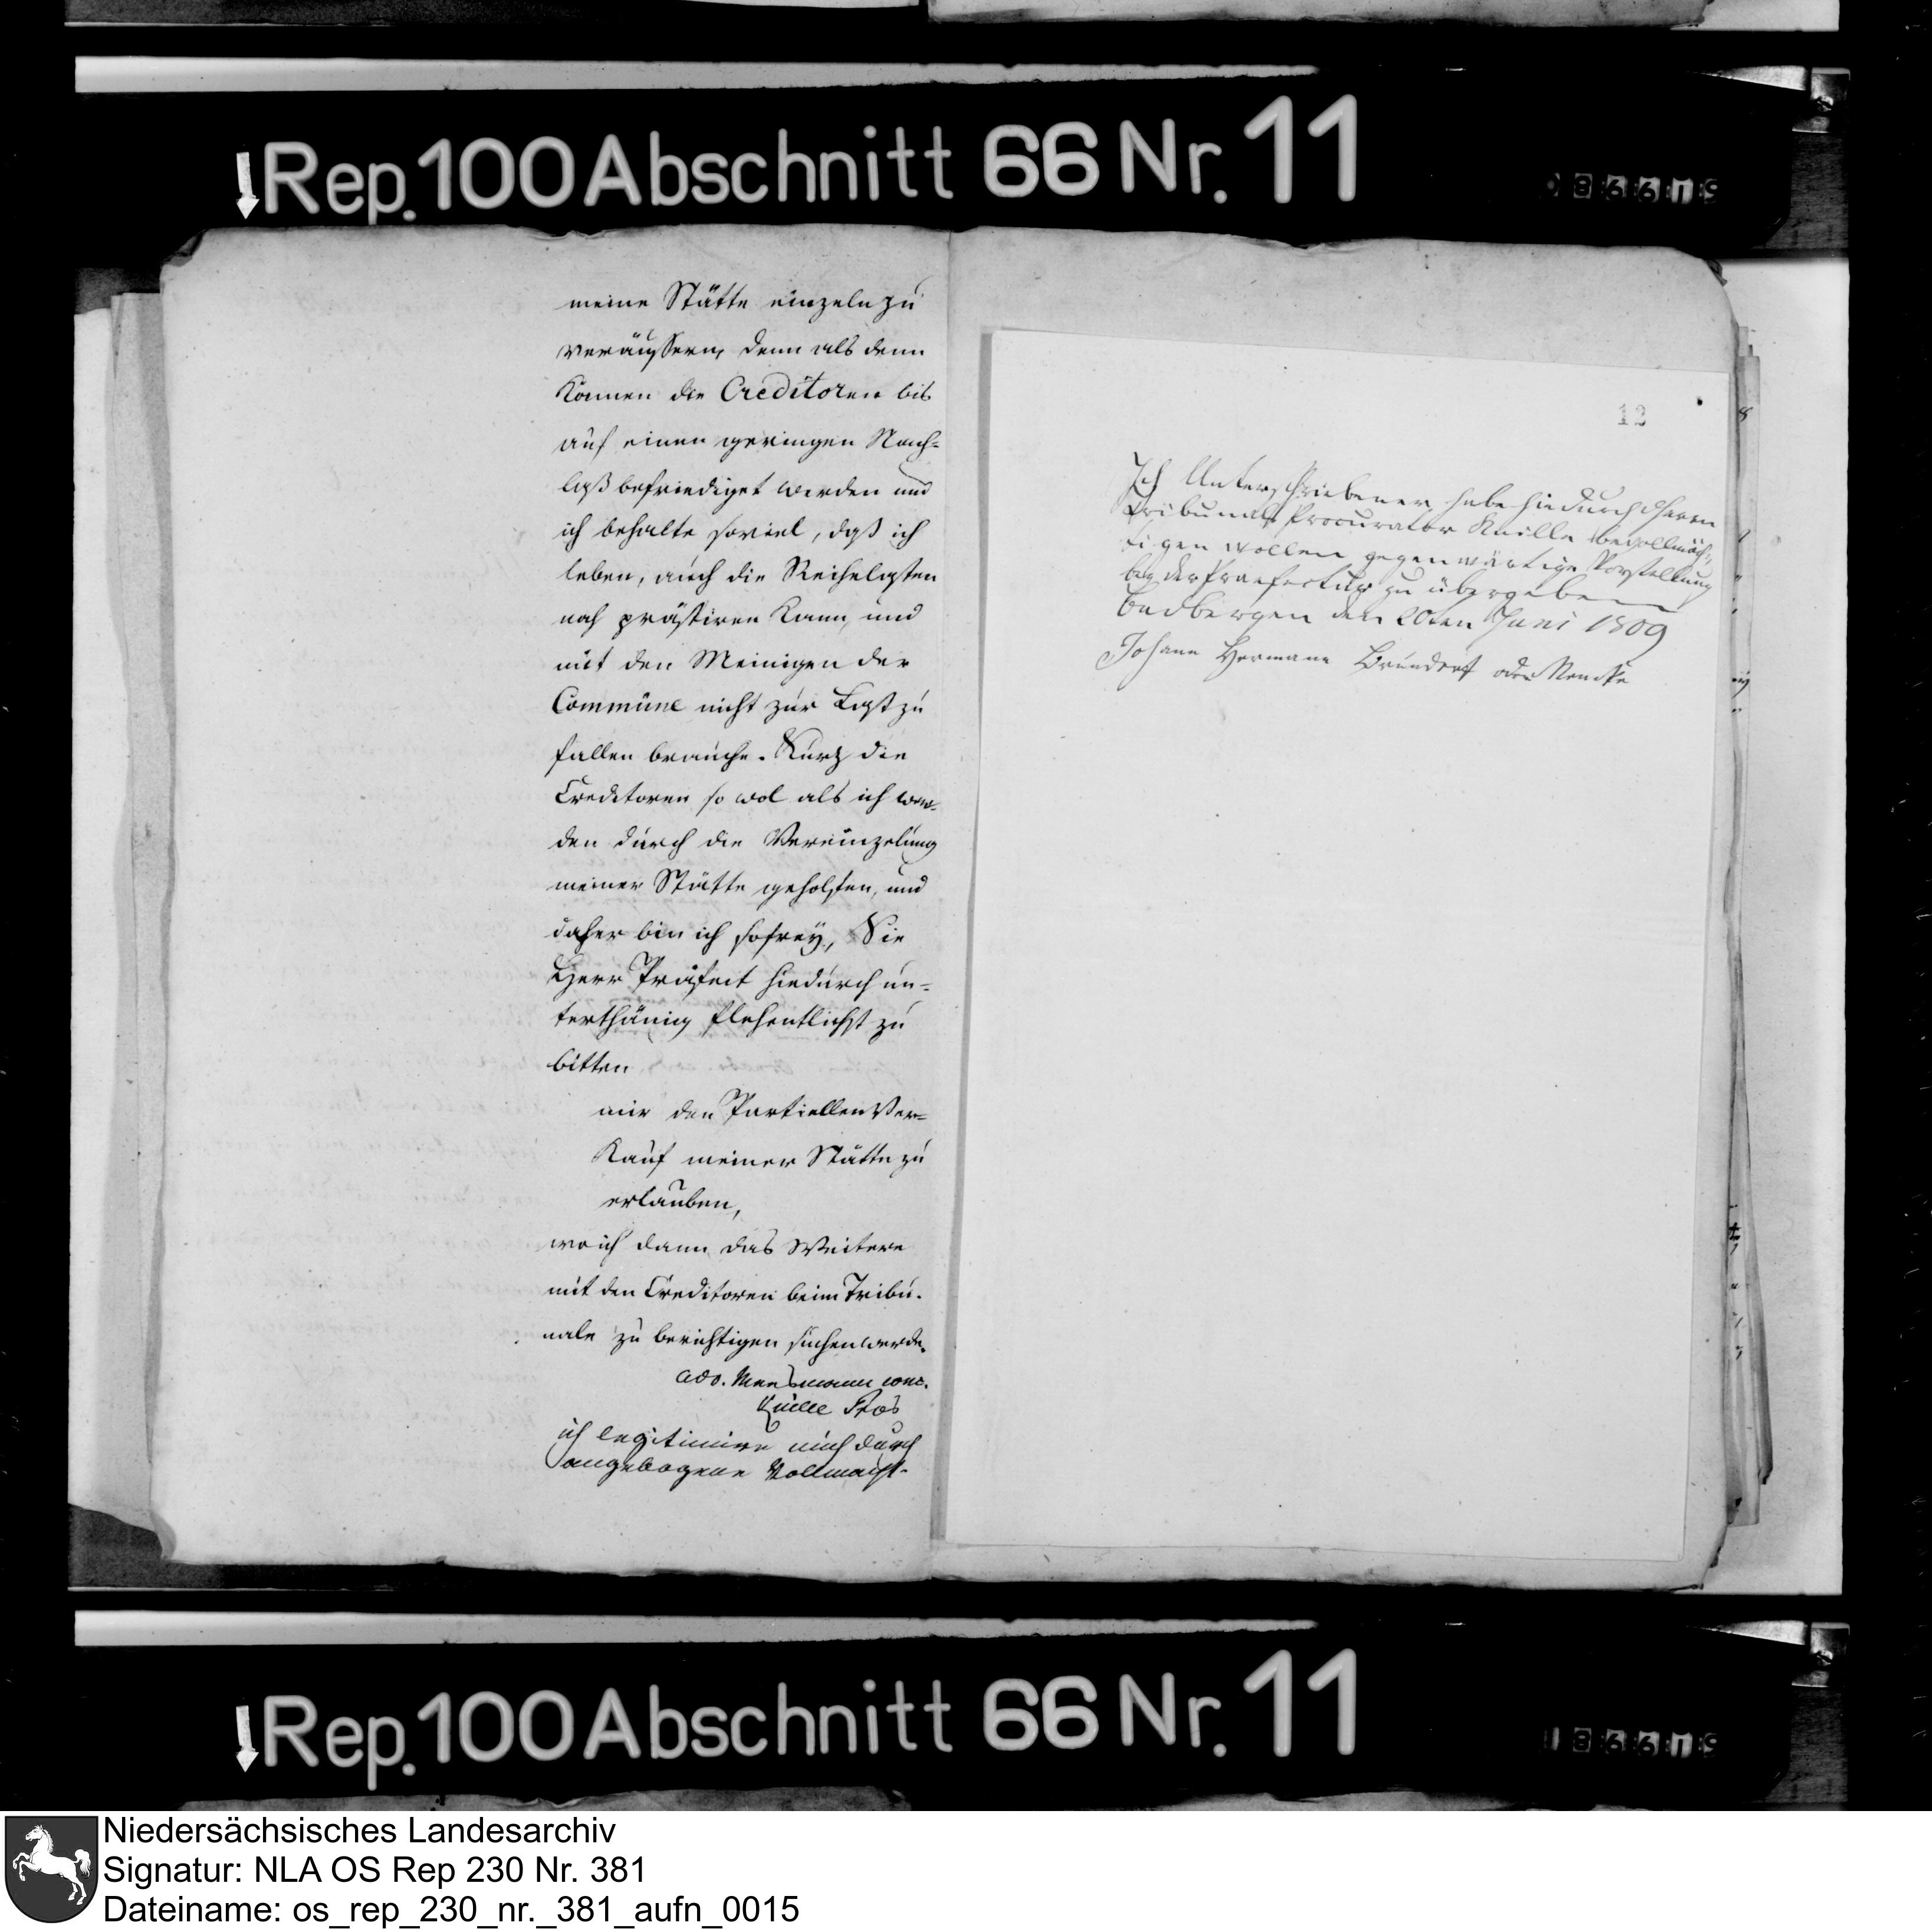 Rep. 100 Abschnitt 66 Nr. 11
meine Stätte einzeln zu
veräussern, denn als denn
können die Creditoren bis
auf einen geringen Nach=
laß befriediget werden und
ich behalte soviel, daß ich
leben, auch die Reihelasten
noch prästiren kann, und
mit den Meinigen der
Commüne nicht zur Last zu
fallen brauche. Kurz die
Creditoren so wol als ich wer=
den durch die Vereinzelung
meiner Stätte geholfen, und
daher bin ich so frey, Sie
Herr Präfect hiedurch un=
terthänig flehentlichst zu
bitten
mir den Partiellen Ver=
kauf meiner Stätte zu
erlauben,
wo ich dann das Weitere
mit den Creditoren beim Tribu.
nale zu berichtigen suchen werde.
adv. conc.
Knille
ich legitimire mich durch
angebogene Vollmacht.
12
Ich Unterschriebener habe hiedurch Herrn
Tribunals Procurator Knille bevollmäch=
tigen wollen gegenwärtige Vorstellung
bey der Praefectur zu übergeben
Badbergen den 20ten Juni 1809
Johann Hermann oder
Rep. 100 Abschnitt 66 Nr. 11
Niedersächsisches Landesarchiv
Signatur: NLA OS Rep 230 Nr. 381
Dateiname: os_rep_230_nr._381_aufn_0015